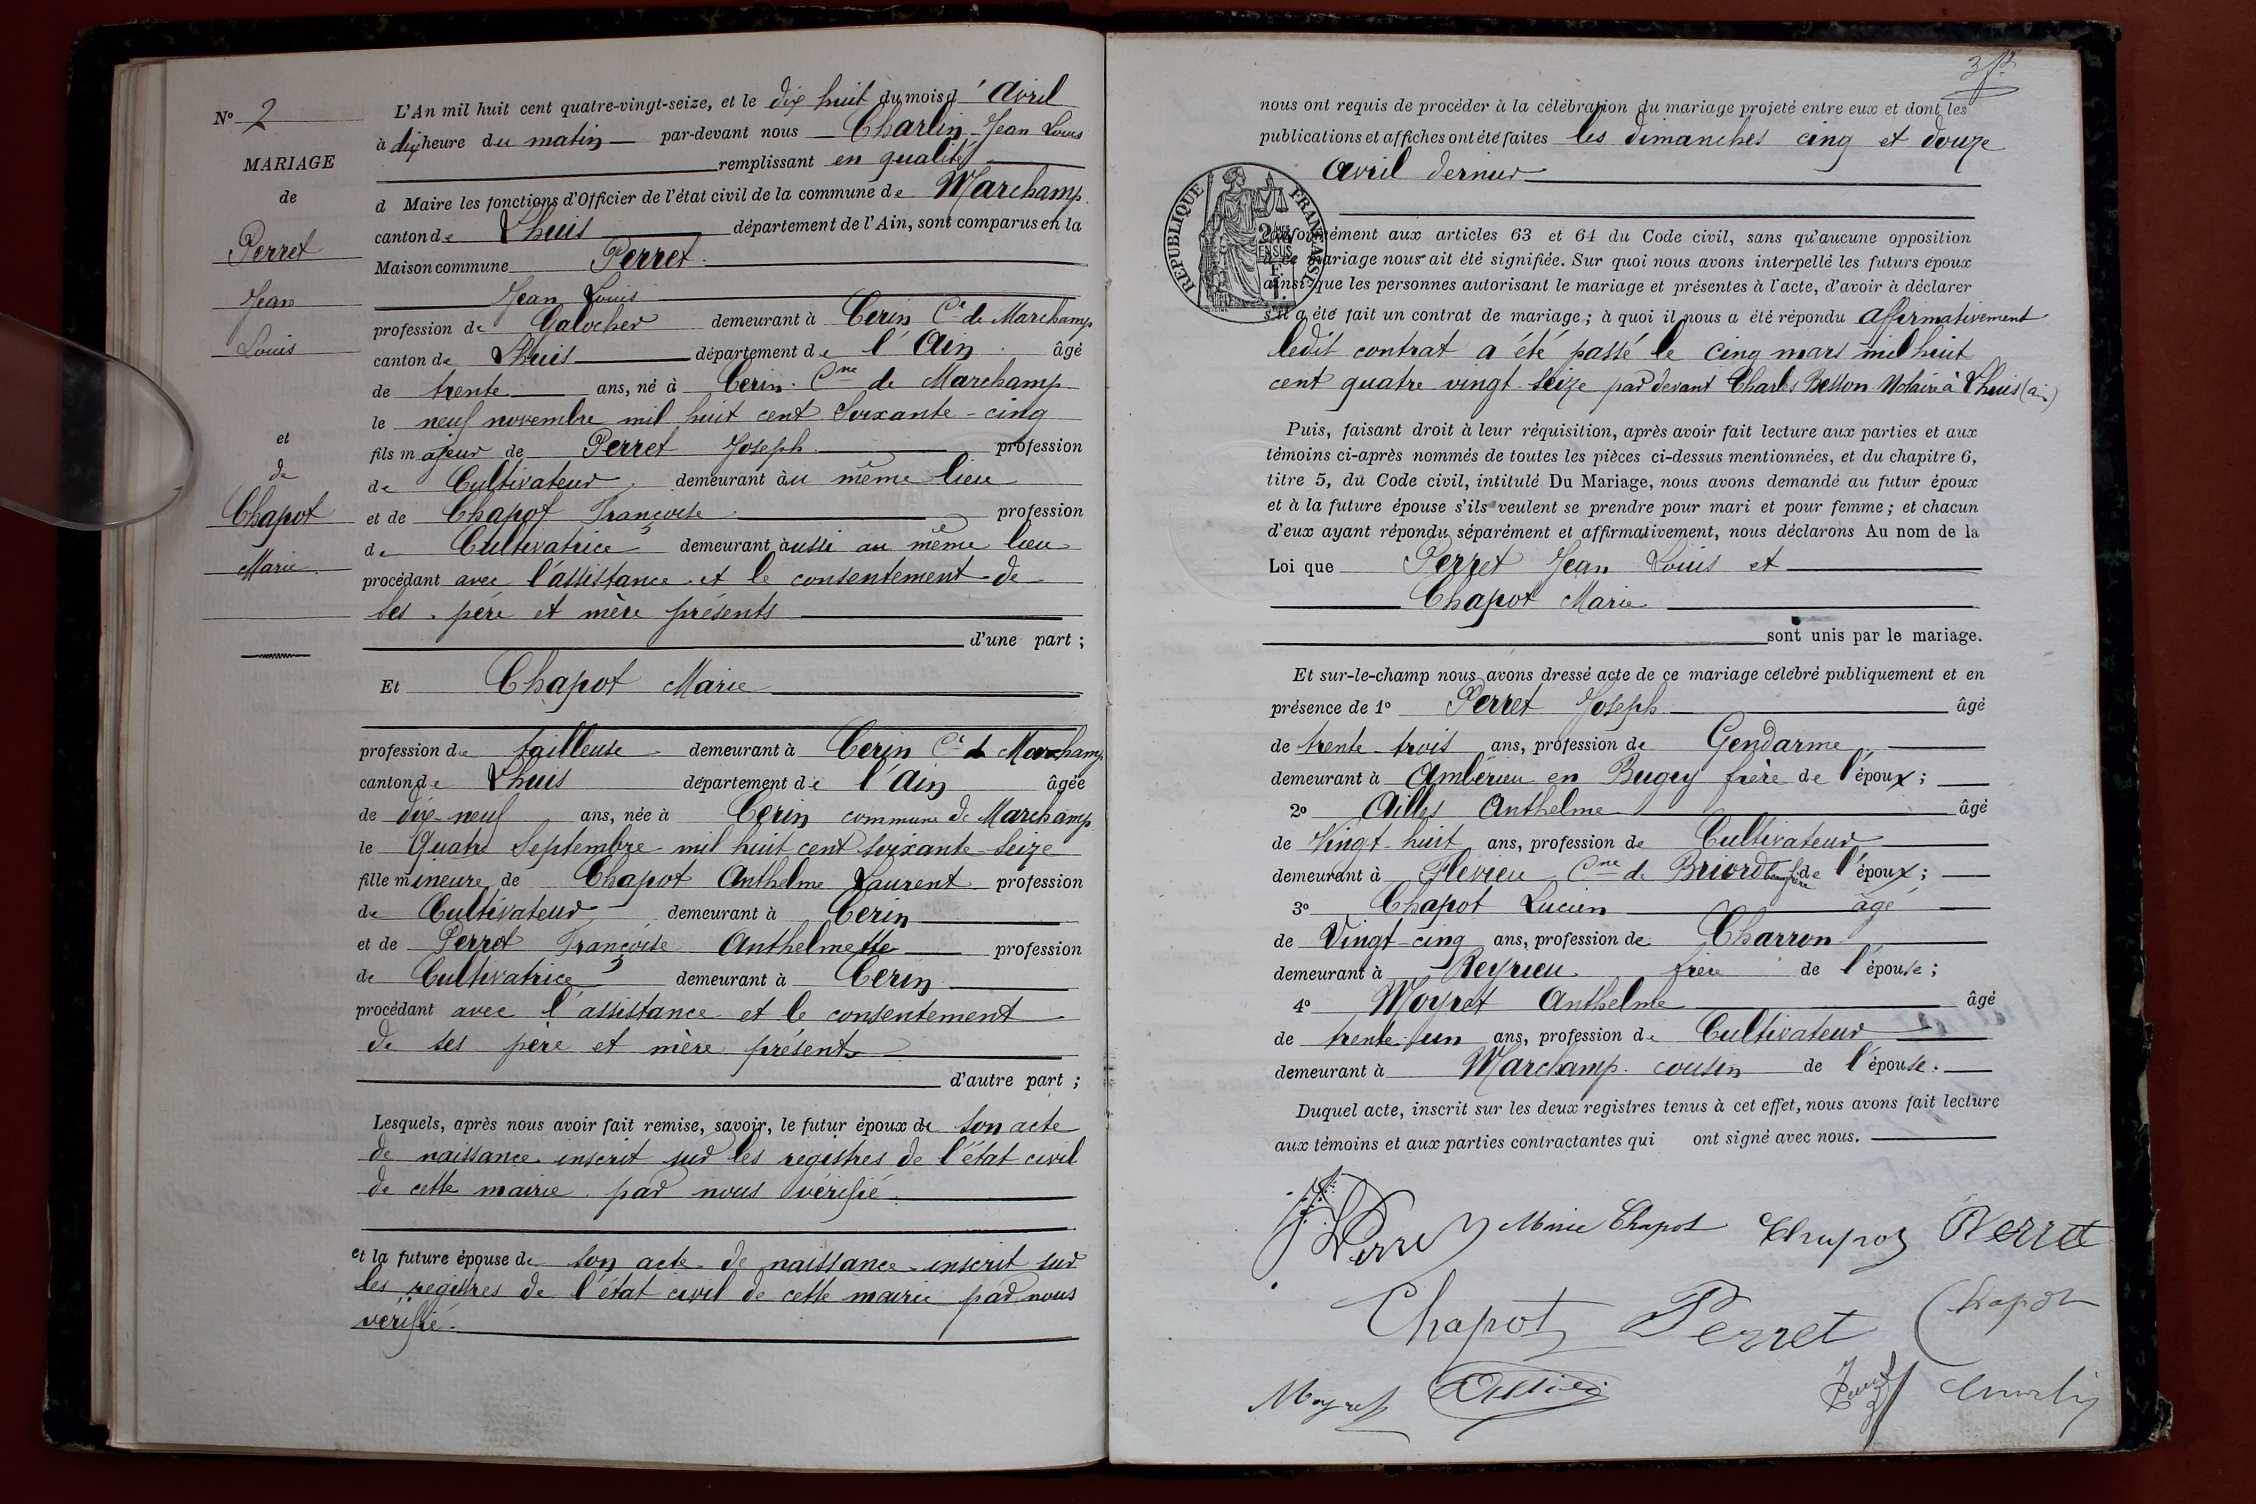 N° 2
MARIAGE
de
Perret
Jean
Louis
et
de
Chapot
Marie
L'An mil huit cent quatre-vingt-seize, et le dix huit du mois d'Avril
à dix heure du matin par-devant nous Charlin Jean Louis
remplissant en qualité
d Maire les fonctions d'Officier de l'état civil de la commune de Marchamp
canton de Lhuis département de l'Ain, sont comparus en la
Maison commune Perret
Jean Louis
profession de Galocher demeurant à Cerin Cne de Marchamp
canton de Lhuis département de l'Ain âgé
de trente ans, né à Cerin Cne de Marchamp
le neuf novembre mil huit cent soixante-cinq
fils majeur de Perret Joseph profession
de Cultivateur demeurant au même lieu
et de Chapot Françoise profession
de Cultivatrice demeurant aussi au même lieu
procédant avec l'assistance et le consentement de
ses père et mère présents
d'une part ;
Et Chapot Marie
profession de tailleuse demeurant à Cerin Cne de Marchamp
canton de Lhuis département de l'Ain âgée
de dix-neuf ans, née à Cerin commune de Marchamp
le Quatre Septembre mil huit cent soixante-seize
fille mineure de Chapot Anthelme Laurent profession
de Cultivateur demeurant à Cerin
et de Perret Françoise Anthelmette profession
de Cultivatrice demeurant à Cerin
procédant avec l'assistance et le consentement
de ses père et mère présents
d'autre part ;
Lesquels, après nous avoir fait remise, savoir, le futur époux de son acte
de naissance inscrit sur les registres de l'état civil
de cette mairie par nous vérifié
et la future épouse de son acte de naissance inscrit sur
les registres de l'état civil de cette mairie par nous
vérifié.
3
nous ont requis de procéder à la célébration du mariage projeté entre eux et dont les
publications et affiches ont été faites les dimanches cinq et douze
avril dernier
RÉPUBLIQUE FRANÇAISE
conformément aux articles 63 et 64 du Code civil, sans qu'aucune opposition
à ce mariage nous ait été signifiée. Sur quoi nous avons interpellé les futurs époux
ainsi que les personnes autorisant le mariage et présentes à l'acte, d'avoir à déclarer
s'il a été fait un contrat de mariage ; à quoi il nous a été répondu affirmativement
ledit contrat a été passé le cinq mars mil huit
cent quatre vingt seize par devant Charles Besson Notaire à Lhuis (ain)
Puis, faisant droit à leur réquisition, après avoir fait lecture aux parties et aux
témoins ci-après nommés de toutes les pièces ci-dessus mentionnées, et du chapitre 6,
titre 5, du Code civil, intitulé Du Mariage, nous avons demandé au futur époux
et à la future épouse s'ils veulent se prendre pour mari et pour femme ; et chacun
d'eux ayant répondu séparément et affirmativement, nous déclarons Au nom de la
Loi que Perret Jean Louis et
Chapot Marie
sont unis par le mariage.
Et sur-le-champ nous avons dressé acte de ce mariage célébré publiquement et en
présence de 1° Perret Joseph âgé
de trente-trois ans, profession de Gendarme
demeurant à Ambérieu en Bugey frère de l'époux ;
2° Aillod Anthelme âgé
de Vingt-huit ans, profession de Cultivateur
demeurant à Flévieu Cne de Briord beau frère de l'époux ;
3° Chapot Lucien âgé
de Vingt-cinq ans, profession de Charron
demeurant à Reyrieu frère de l'épouse ;
4° Moyret Anthelme âgé
de trente-un ans, profession de Cultivateur
demeurant à Marchamp cousin de l'épouse.
Duquel acte, inscrit sur les deux registres tenus à cet effet, nous avons fait lecture
aux témoins et aux parties contractantes qui ont signé avec nous.
JL Perret Marie Chapot Chapot Perret
Chapot Perret Chapot
Moyret Charlin